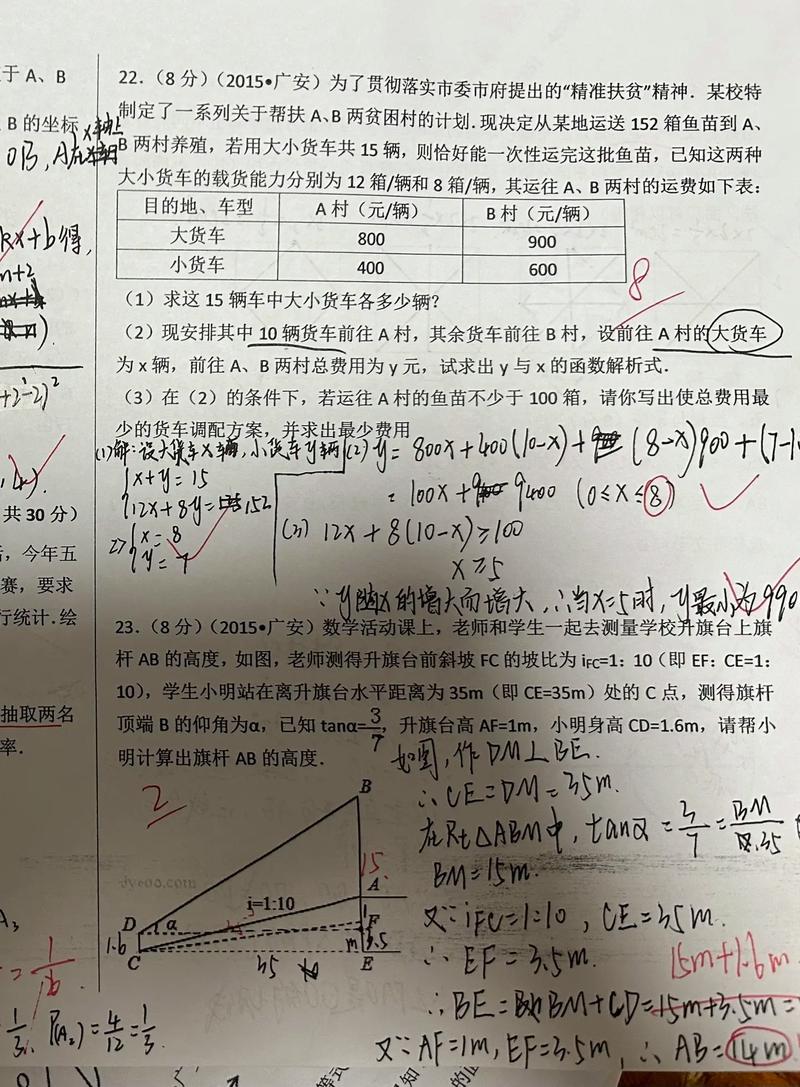 于 A、B
B 的坐标
x轴上
OB, A在x轴
kx+b得,
m+2
+2²-2)²
共 30 分）
，今年五
赛，要求
行统计．绘
抽取两名
率．
A₃
= 1/16
1/3. P(A₂)= 4/12 = 1/3.
22．（8 分）（2015•广安）为了贯彻落实市委市府提出的“精准扶贫”精神．某校特
制定了一系列关于帮扶 A、B 两贫困村的计划．现决定从某地运送 152 箱鱼苗到 A、
B 两村养殖，若用大小货车共 15 辆，则恰好能一次性运完这批鱼苗，已知这两种
大小货车的载货能力分别为 12 箱/辆和 8 箱/辆，其运往 A、B 两村的运费如下表：
目的地、车型 A 村（元/辆） B 村（元/辆）
大货车 800 900
小货车 400 600
8
（1）求这 15 辆车中大小货车各多少辆？
（2）现安排其中 10 辆货车前往 A 村，其余货车前往 B 村，设前往 A 村的大货车
为 x 辆，前往 A、B 两村总费用为 y 元，试求出 y 与 x 的函数解析式．
（3）在（2）的条件下，若运往 A 村的鱼苗不少于 100 箱，请你写出使总费用最
少的货车调配方案，并求出最少费用
(1)解：设大货车x辆，小货车y辆
x+y=15
12x+8y=152
x=8
y=7
(2) y=800x+400(10-x)+(8-x)900+(7-1
=100x+9400 (0≤x≤8)
(3) 12x+8(10-x)≥100
x≥5
∵y随x的增大而增大，∴当x=5时，y最小为990
23．（8 分）（2015•广安）数学活动课上，老师和学生一起去测量学校升旗台上旗
杆 AB 的高度，如图，老师测得升旗台前斜坡 FC 的坡比为 iFC=1：10（即 EF：CE=1：
10），学生小明站在离升旗台水平距离为 35m（即 CE=35m）处的 C 点，测得旗杆
顶端 B 的仰角为α，已知 tanα=3/7，升旗台高 AF=1m，小明身高 CD=1.6m，请帮小
明计算出旗杆 AB 的高度．
2
B
15.
A
i=1:10
D α
F
1.6
C
35
m
3.5
E
jyeoo.com
如图，作DM⊥BE.
∴CE=DM=35m.
在Rt△ABM中，tanα=3/7=BM/35
BM=15m.
又∵iFC=1:10，CE=35m.
∴EF=3.5m.
15m+1.6m
∴BE=BM+CD=15m+3.5m=
又∵AF=1m, EF=3.5m, ∴AB=14m